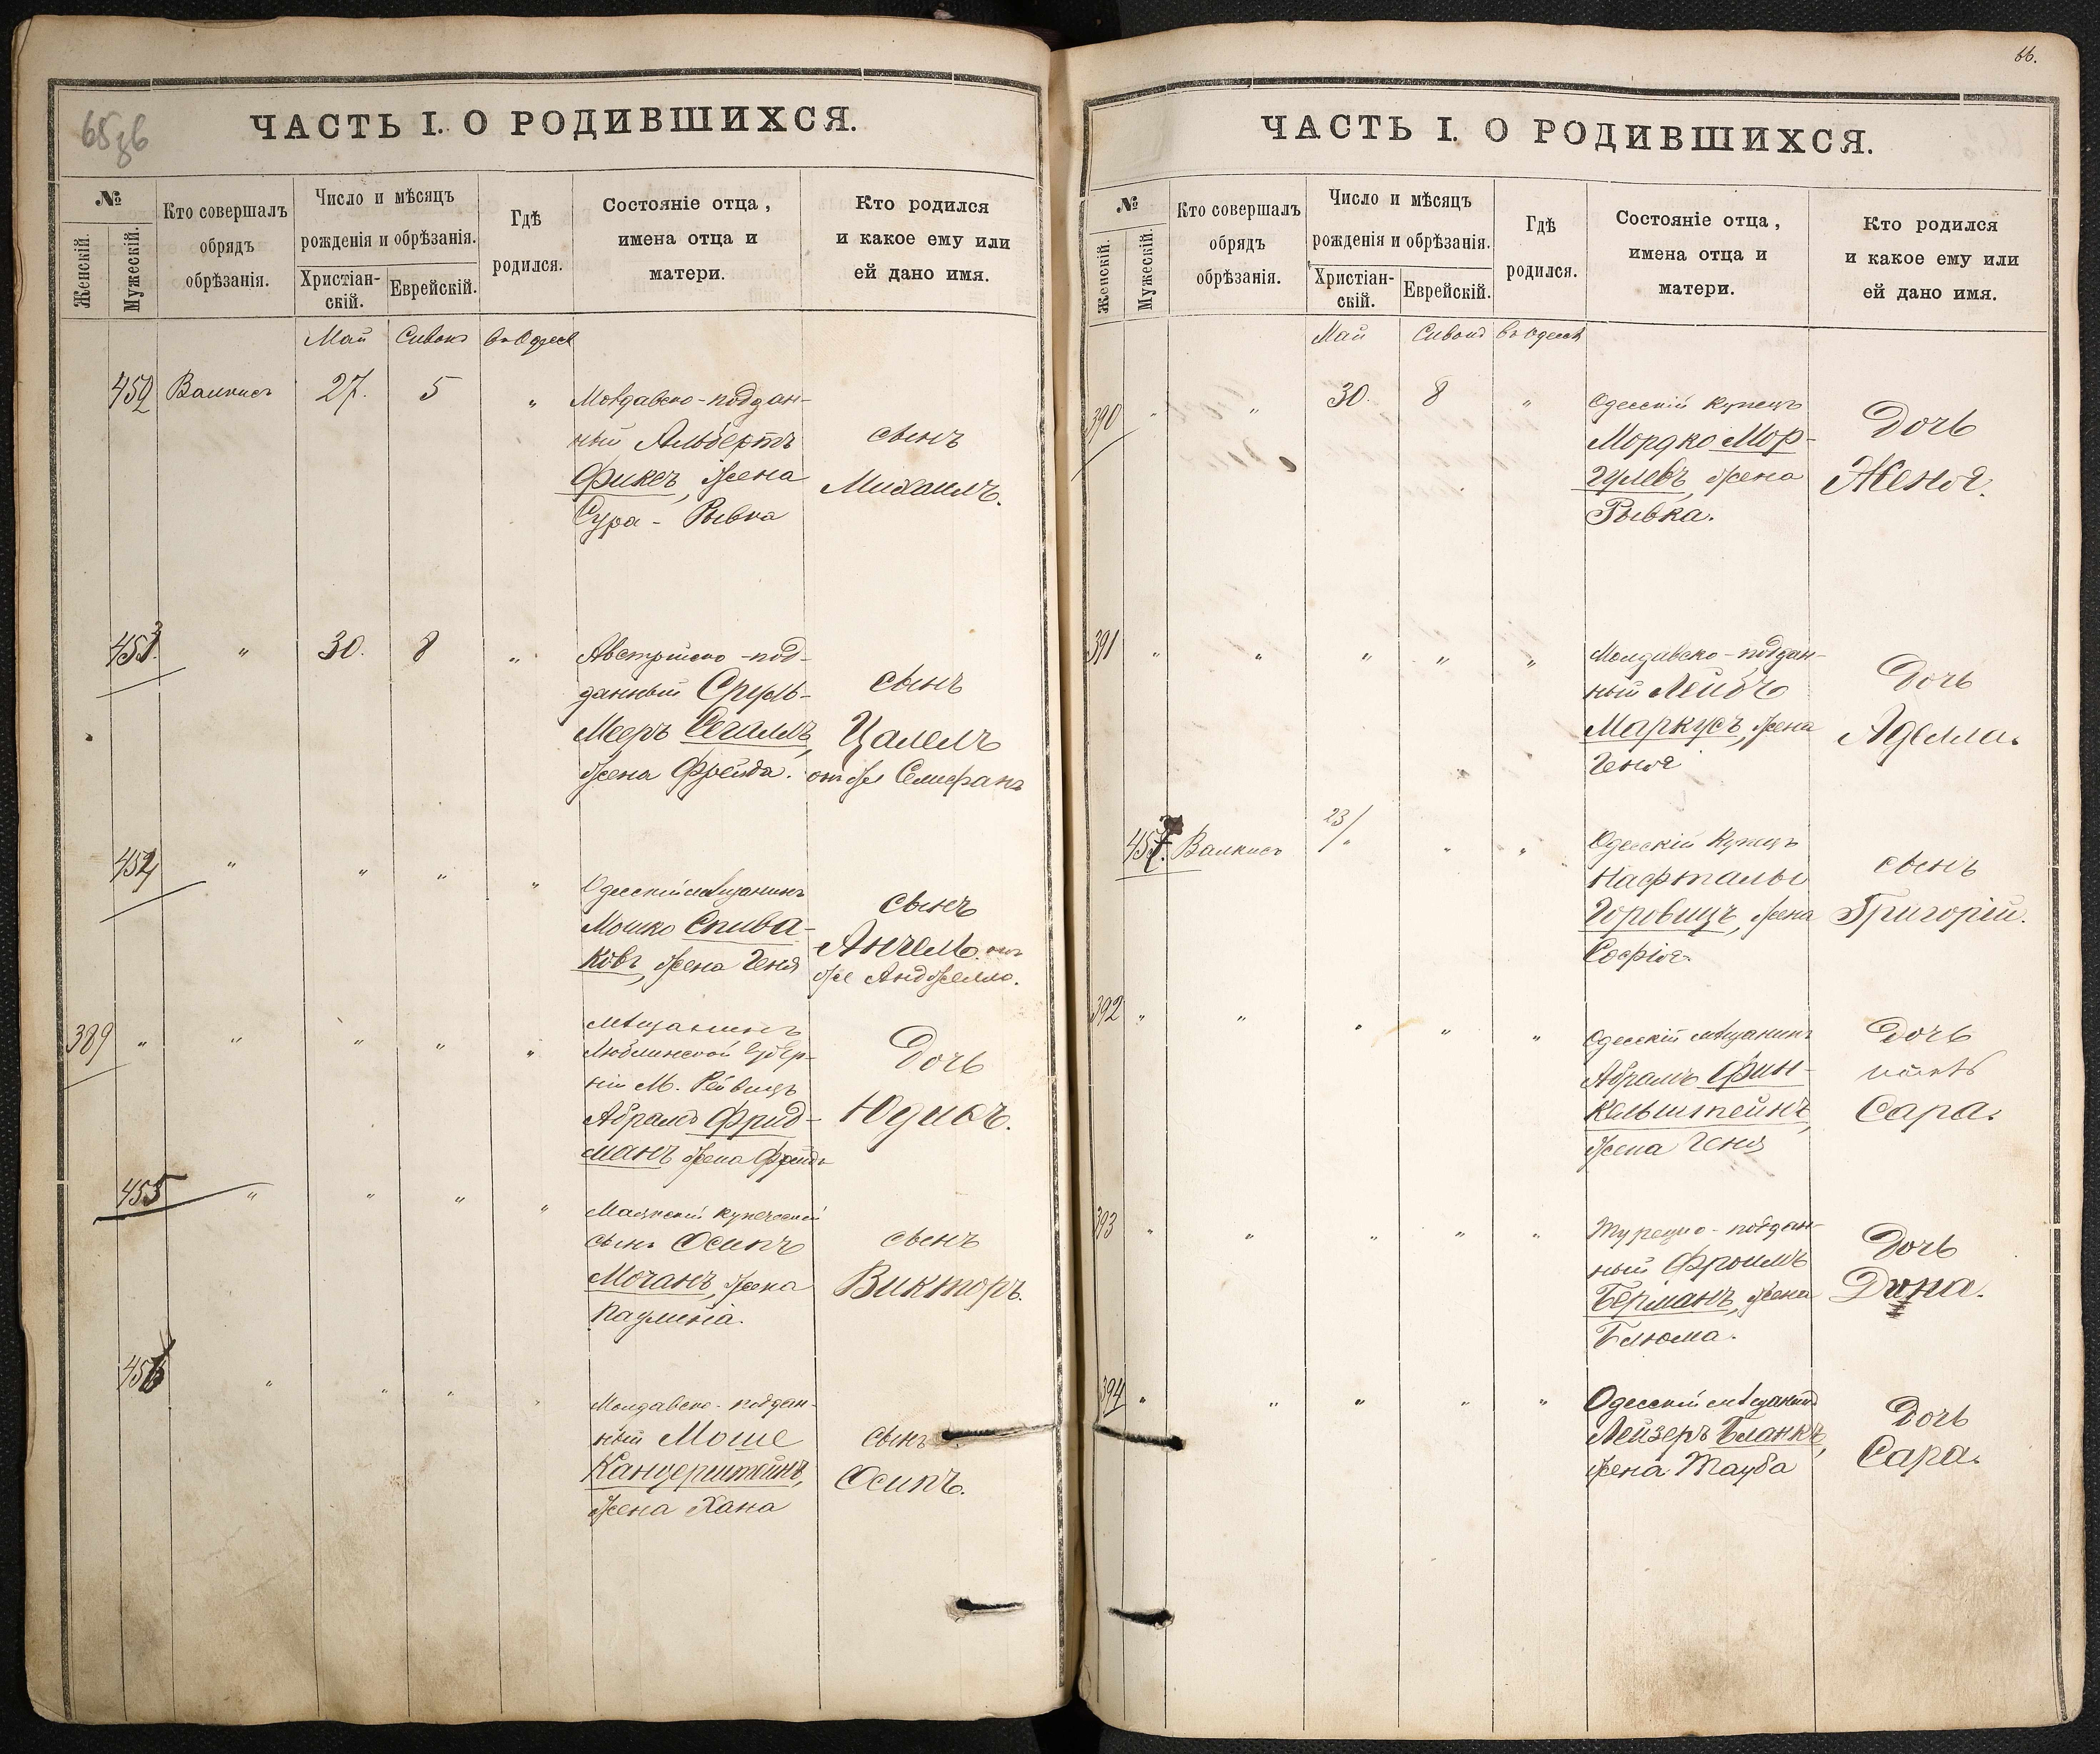 65зб
ЧАСТЬ I. О РОДИВШИХСЯ.
№
Женскій.
Мужескій.
Кто совершалъ
обрядъ
обрѣзанія.
Число и мѣсяцъ
рожденія и обрѣзанія.
Христіан-
скій.
Еврейскій.
Гдѣ
родился.
Состояніе отца,
имена отца и
матери.
Кто родился
и какое ему или
ей дано имя.
Май Сивонъ въ Одессѣ
452 Валкисъ 27. 5 "
Молдавско-поддан-
ный Альбертъ
Фиксъ, жена
Сура - Рывка
сынъ
Михаилъ.
453. " 30. 8 "
Австрійско-под-
данный Сруль-
Мееръ Сегаллъ,
жена Фрейда.
сынъ
Цалелъ
онъ же Селифанъ
454 " " " "
Одесскій мѣщанинъ
Мошко Спива-
ковъ, жена Геня
сынъ
Ангелъ. онъ
же Анджелло.
389 " " " " "
мѣщанинъ
Люблинской губер-
ніи М.
Абрамъ Фрид-
манъ жена Фрейда
Дочь
Юдикъ.
455 " " " "
Маякскій купеческій
сынъ Осипъ
Моганъ, жена
Паулина.
сынъ
Викторъ.
456 " " " "
Молдавско-поддан-
ный Моше
Канцерштейнъ,
жена Хана
сынъ
Осипъ.
66.
ЧАСТЬ I. О РОДИВШИХСЯ.
№
Женскій.
Мужескій.
Кто совершалъ
обрядъ
обрѣзанія.
Число и мѣсяцъ
рожденія и обрѣзанія.
Христіан-
скій.
Еврейскій.
Гдѣ
родился.
Состояніе отца,
имена отца и
матери.
Кто родился
и какое ему или
ей дано имя.
Май Сивонъ въ Одессѣ
390 " " 30. 8 "
Одесскій купецъ
Мордко Мор-
гулевъ, жена
Рывка.
Дочь
Женя.
391 " " " " "
Молдавско-поддан-
ный Лейбъ
Маркусъ, жена
Геня
Дочь
Аделла.
457. Валкисъ 23/" " "
Одесскій купецъ
Нафталы
Горовицъ, жена
Софія.
сынъ
Григорій.
392 " " " " "
Одесскій мѣщанинъ
Абрамъ Фин-
кельштейнъ,
жена Геня
Дочь
Сара.
393 " " " " "
Турецко-поддан-
ный Фроимъ
Берманъ, жена
Блюма.
Дочь
Дина.
394 " " " " "
Одесскій мѣщанинъ
Лейзеръ Бланкъ,
жена Тауба
Дочь
Сара.